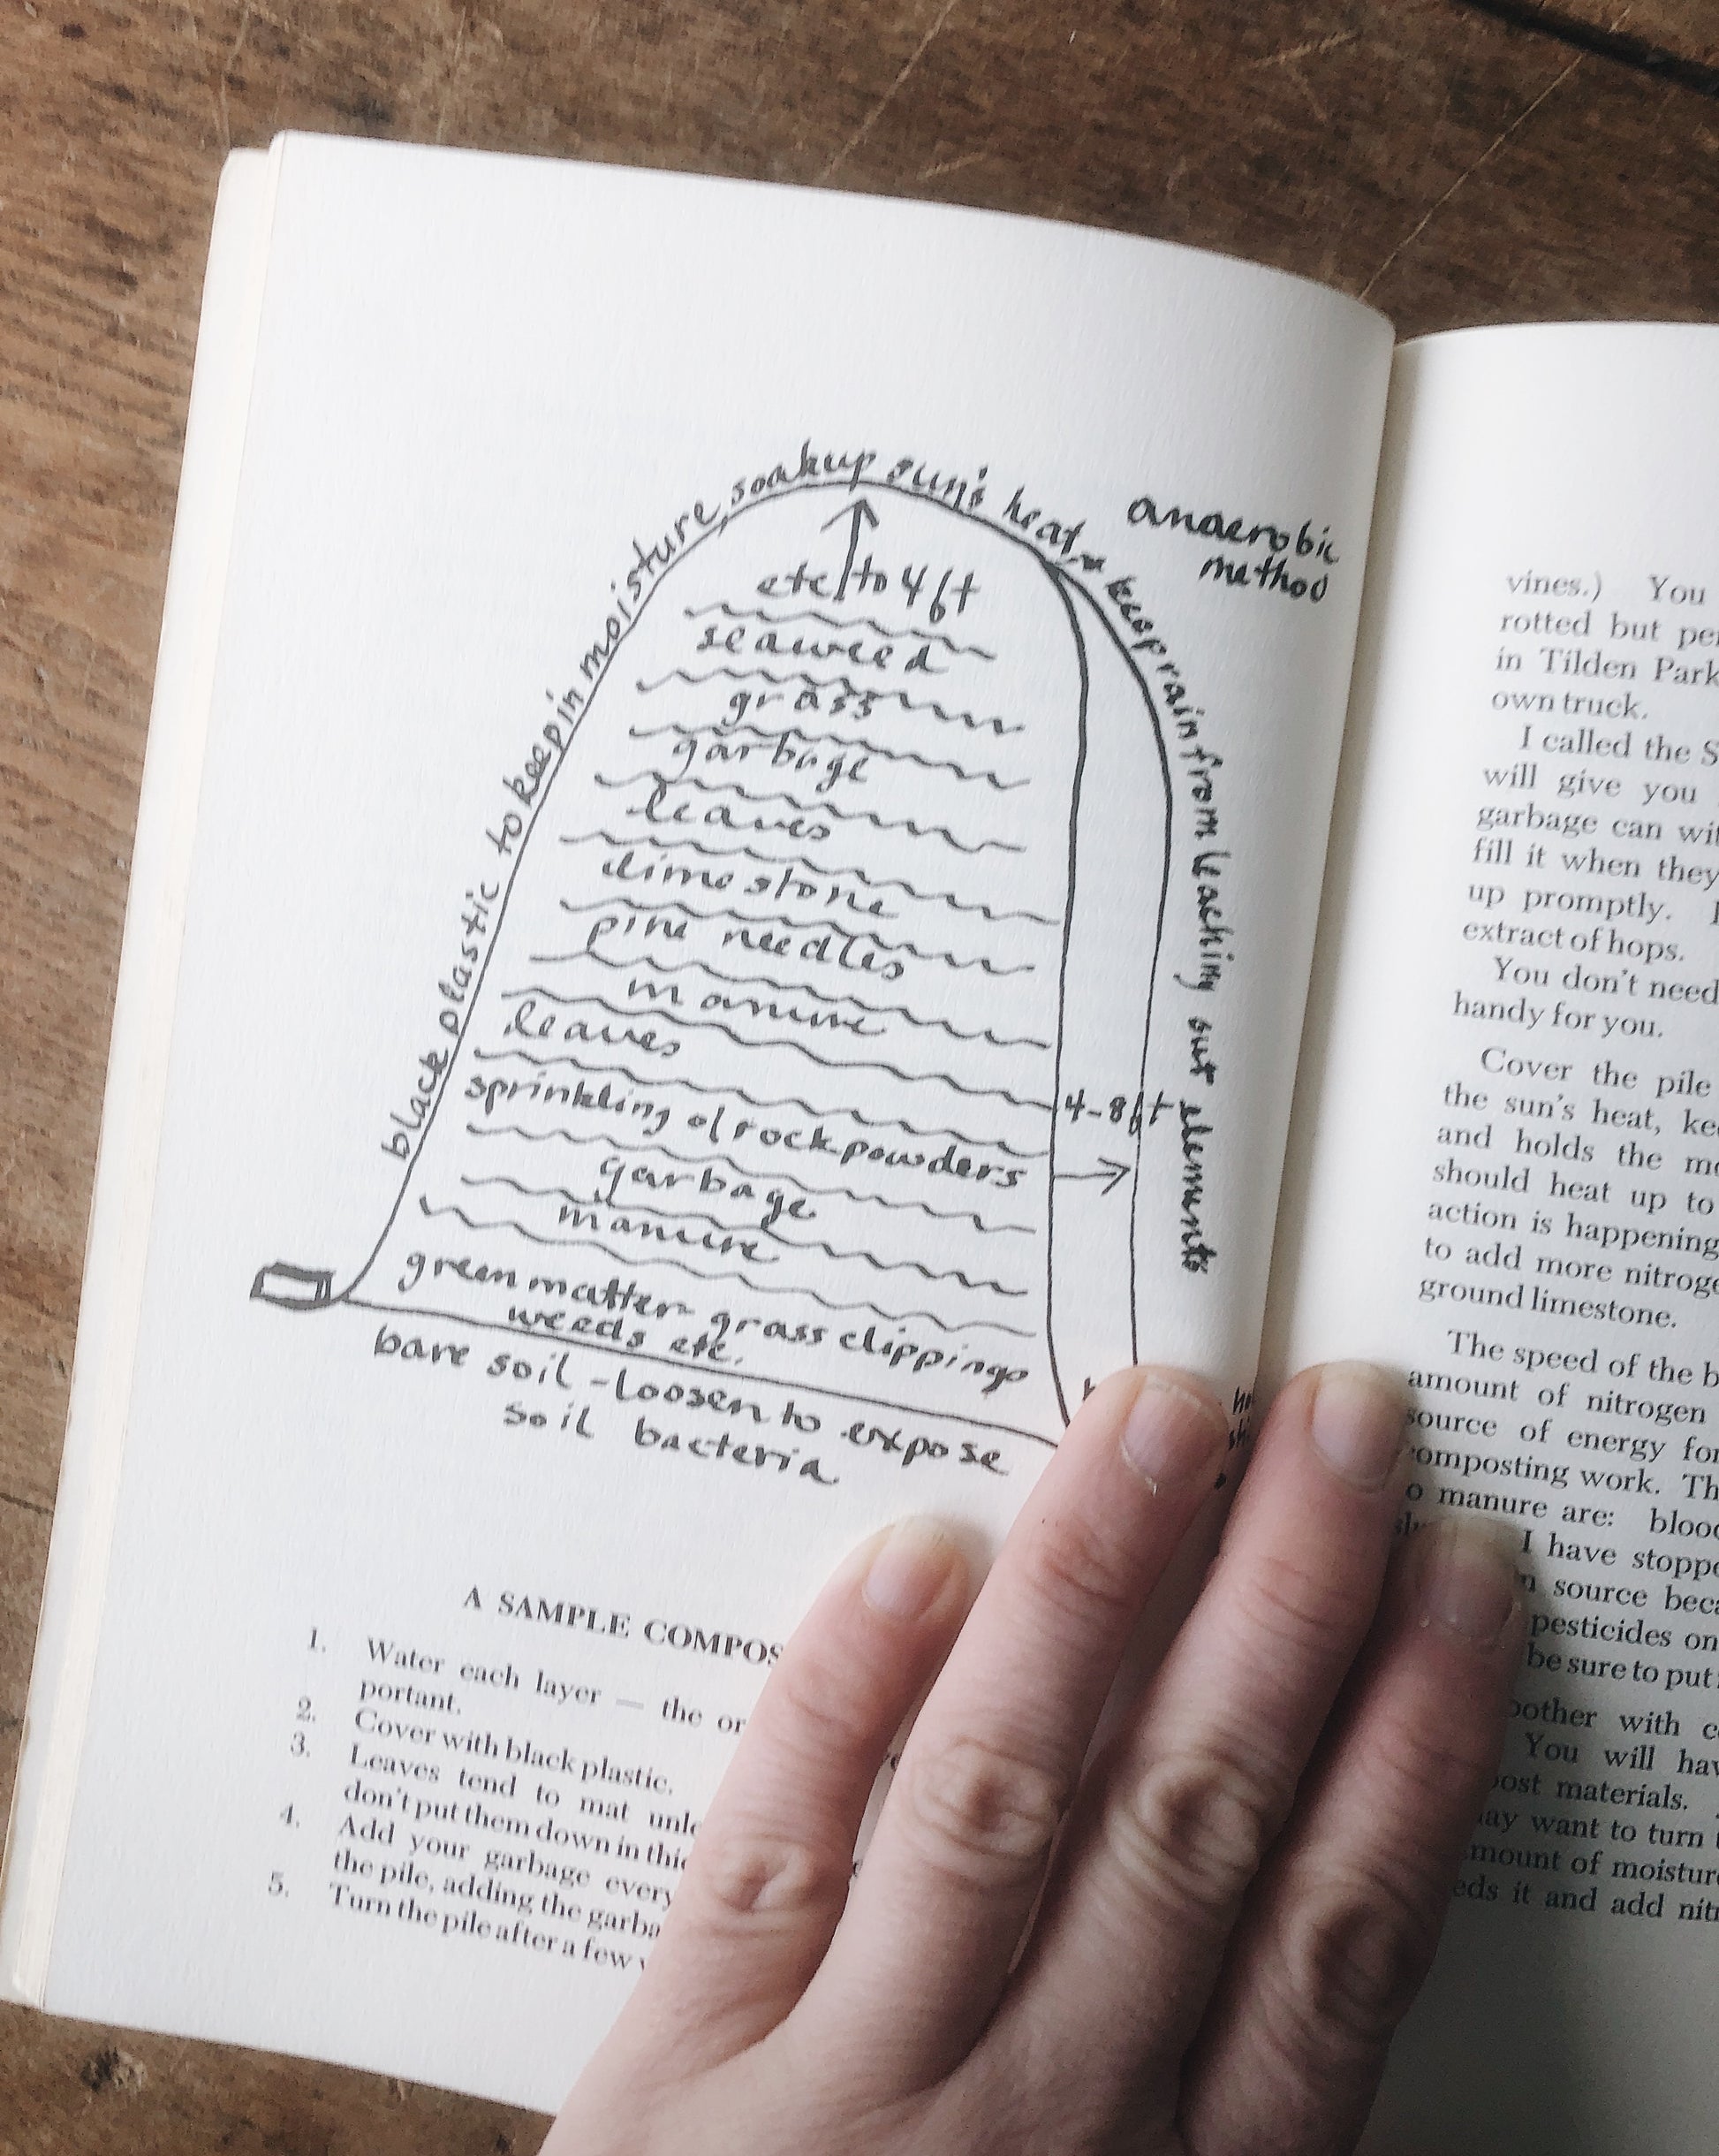 black plastic to keep in moisture, soak up sun's heat, & keep rain from leaching out elements
anaerobic
method
etc to 4 ft
seaweed
grass
garbage
leaves
limestone
pine needles
manure
leaves
sprinkling of rock powders
4-8 ft
garbage
manure
green matter - grass clippings
weeds etc.
bare soil - loosen to expose
soil bacteria
A SAMPLE
1. Water each layer — the
portant.
2. Cover with black plastic.
3. Leaves tend to mat
don't put them down in
4. Add your garbage every
the pile, adding the
5. Turn the pile after a few
vines.) You
rotted but
in Tilden Park
own truck.
I called the
will give you
garbage can
fill it when they
up promptly.
extract of hops.
You don't need
handy for you.
Cover the pile
the sun's heat,
and holds the
should heat up to
action is happening
to add more
ground limestone.
The speed of the
amount of nitrogen
source of energy
composting work.
manure are:
I have
source
pesticides on
be sure to put
with
You will
materials.
want to turn
moisture
it and add